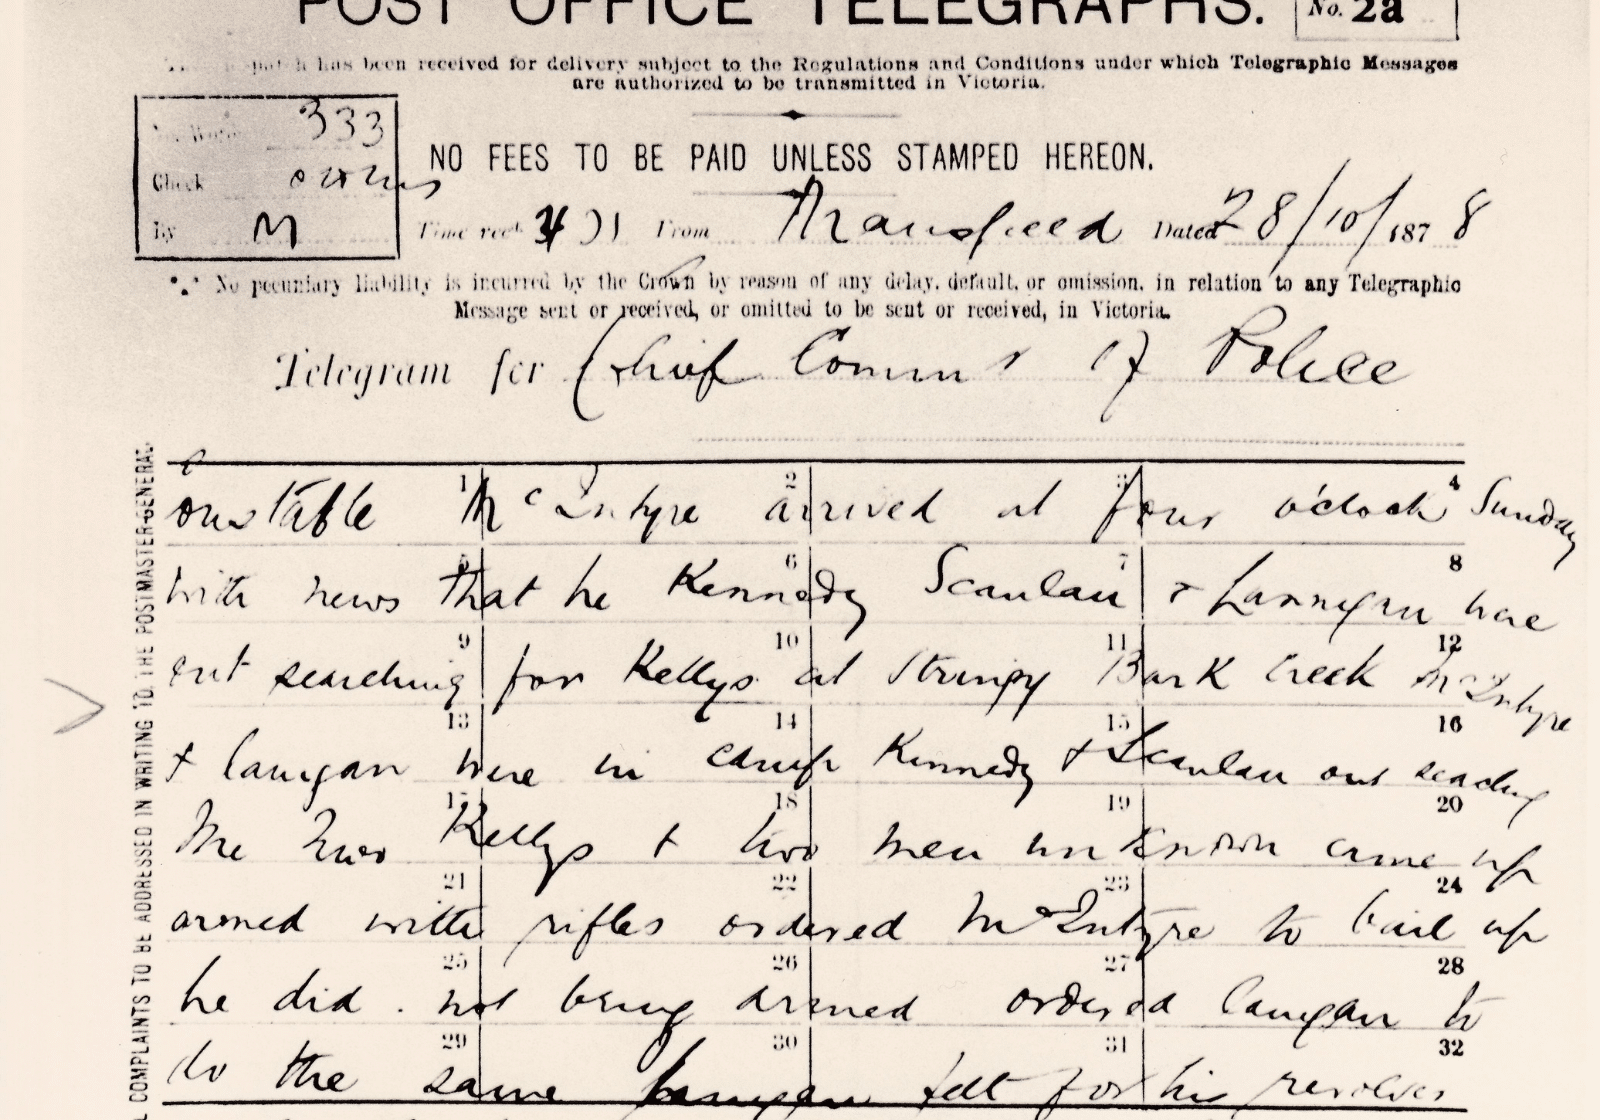 POST OFFICE TELEGRAPHS.
No. 2a
has been received for delivery subject to the Regulations and Conditions under which Telegraphic Messages
are authorized to be transmitted in Victoria.
333
Check
By M
NO FEES TO BE PAID UNLESS STAMPED HEREON.
Time rec. From Mansfield Dated 28/10/1878
No pecuniary liability is incurred by the Crown by reason of any delay, default, or omission, in relation to any Telegraphic
Message sent or received, or omitted to be sent or received, in Victoria.
Telegram for Chief Comms of Police
COMPLAINTS TO BE ADDRESSED IN WRITING TO THE POSTMASTER-GENERAL
1 2 3 4
Constable McIntyre arrived at four o'clock Sunday
5 6 7 8
with news that he Kennedy Scanlan & Lannigan were
9 10 11 12
out searching for Kellys at Stringy Bark Creek McIntyre
13 14 15 16
& lanigan were in camp Kennedy & Scanlan out seaching
17 18 19 20
The two Kellys & two men unknown came up
21 22 23 24
armed with rifles ordered McIntyre to bail up
25 26 27 28
he did . not being armed ordered lanigan to
29 30 31 32
do the same lanigan felt for his revolver